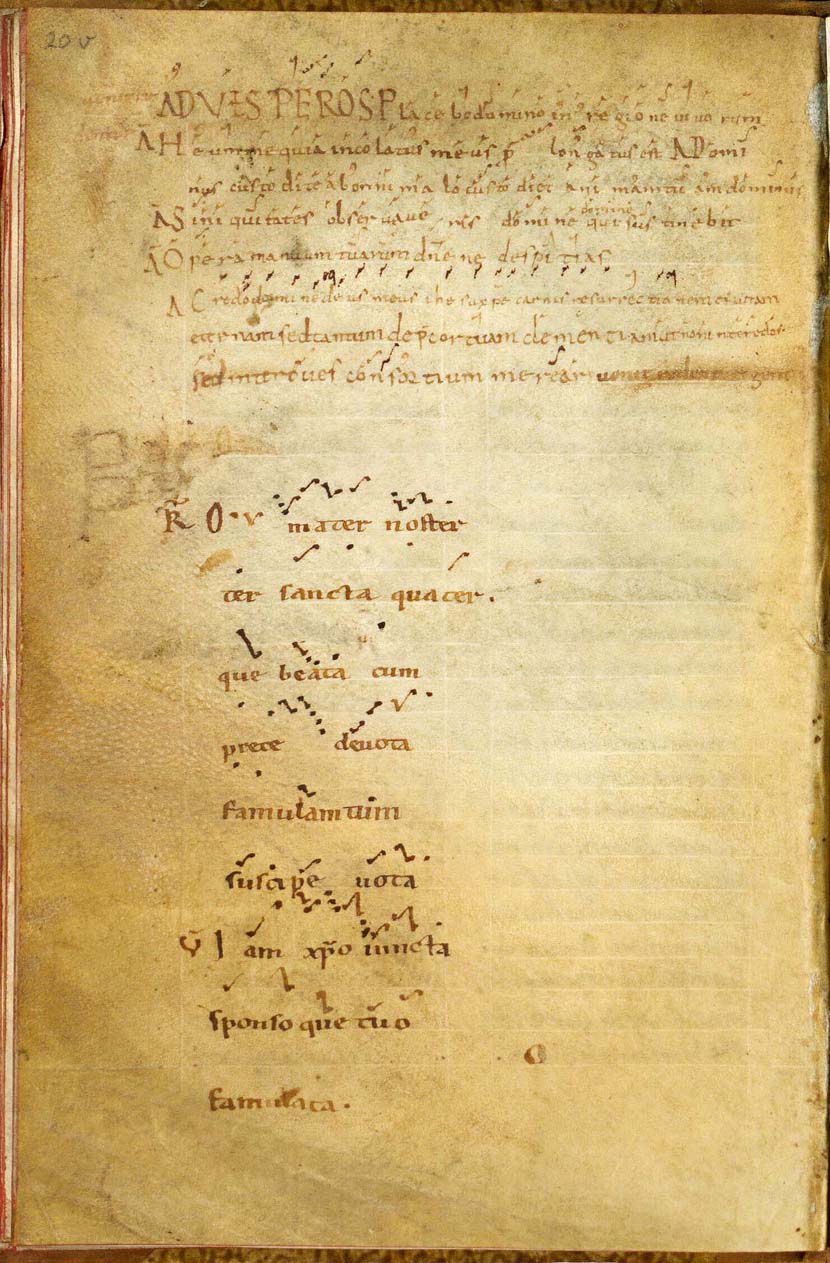 20 v
AD VESPEROS Placebo domino in regione vivorum
A Heu me quia incolatus meus p̄longatus est A Domi
nus custodit te ab omni malo custodiet animam tuam dominus
A Si iniquitates observaveris domine domine quis sustinebit
A Opera manuum tuarum dn̄e ne despitias
A Credo domine deus meus ihesu xp̄e carnis resurrectionem et vitam
eternam sed tantum dep̄cor tuam clementiam ut non inter edos
sed inter oves consortium merear
R̄ O mater noster
ter sancta quater.
que beata cum
prece devota
famulantum
suscipe vota
V̄ Iam xp̄o iuncta
sponso que tuo
famulata.